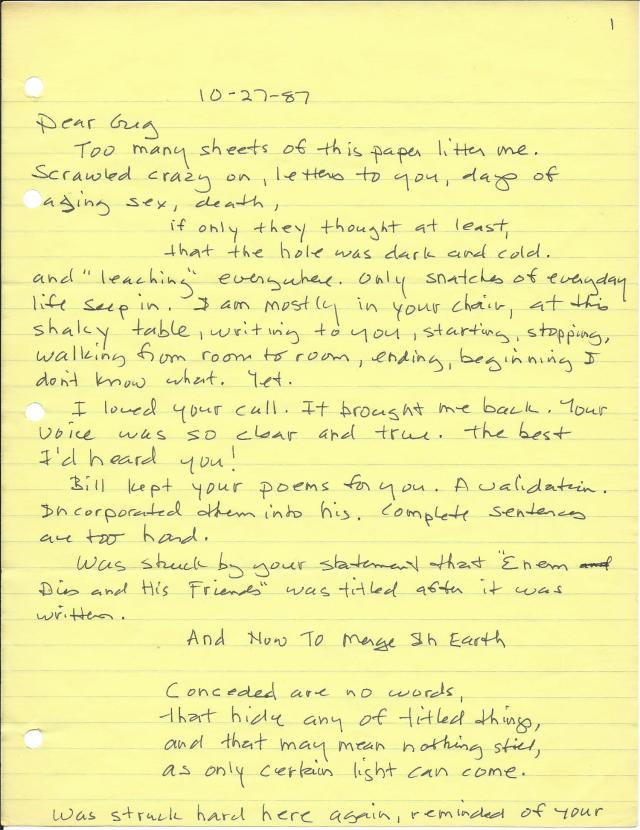 1
10-27-87
Dear Greg
Too many sheets of this paper litter me.
Scrawled crazy on, letters to you, days of
aging sex, death,
if only they thought at least,
that the hole was dark and cold.
and "leaching" everywhere. Only snatches of everyday
life seep in. I am mostly in your chair, at this
shaky table, writing to you, starting, stopping,
walking from room to room, ending, beginning I
don't know what. Yet.
I loved your call. It brought me back. Your
voice was so clear and true. The best
I'd heard you!
Bill kept your poems for you. A validation.
Incorporated them into his. Complete sentences
are too hard.
Was struck by your statement that "Enem and
Dies and His Friends" was titled after it was
written.
And Now To Merge In Earth
Conceded are no words,
that hide any of titled things,
and that may mean nothing still,
as only certain light can come.
Was struck hard here again, reminded of your